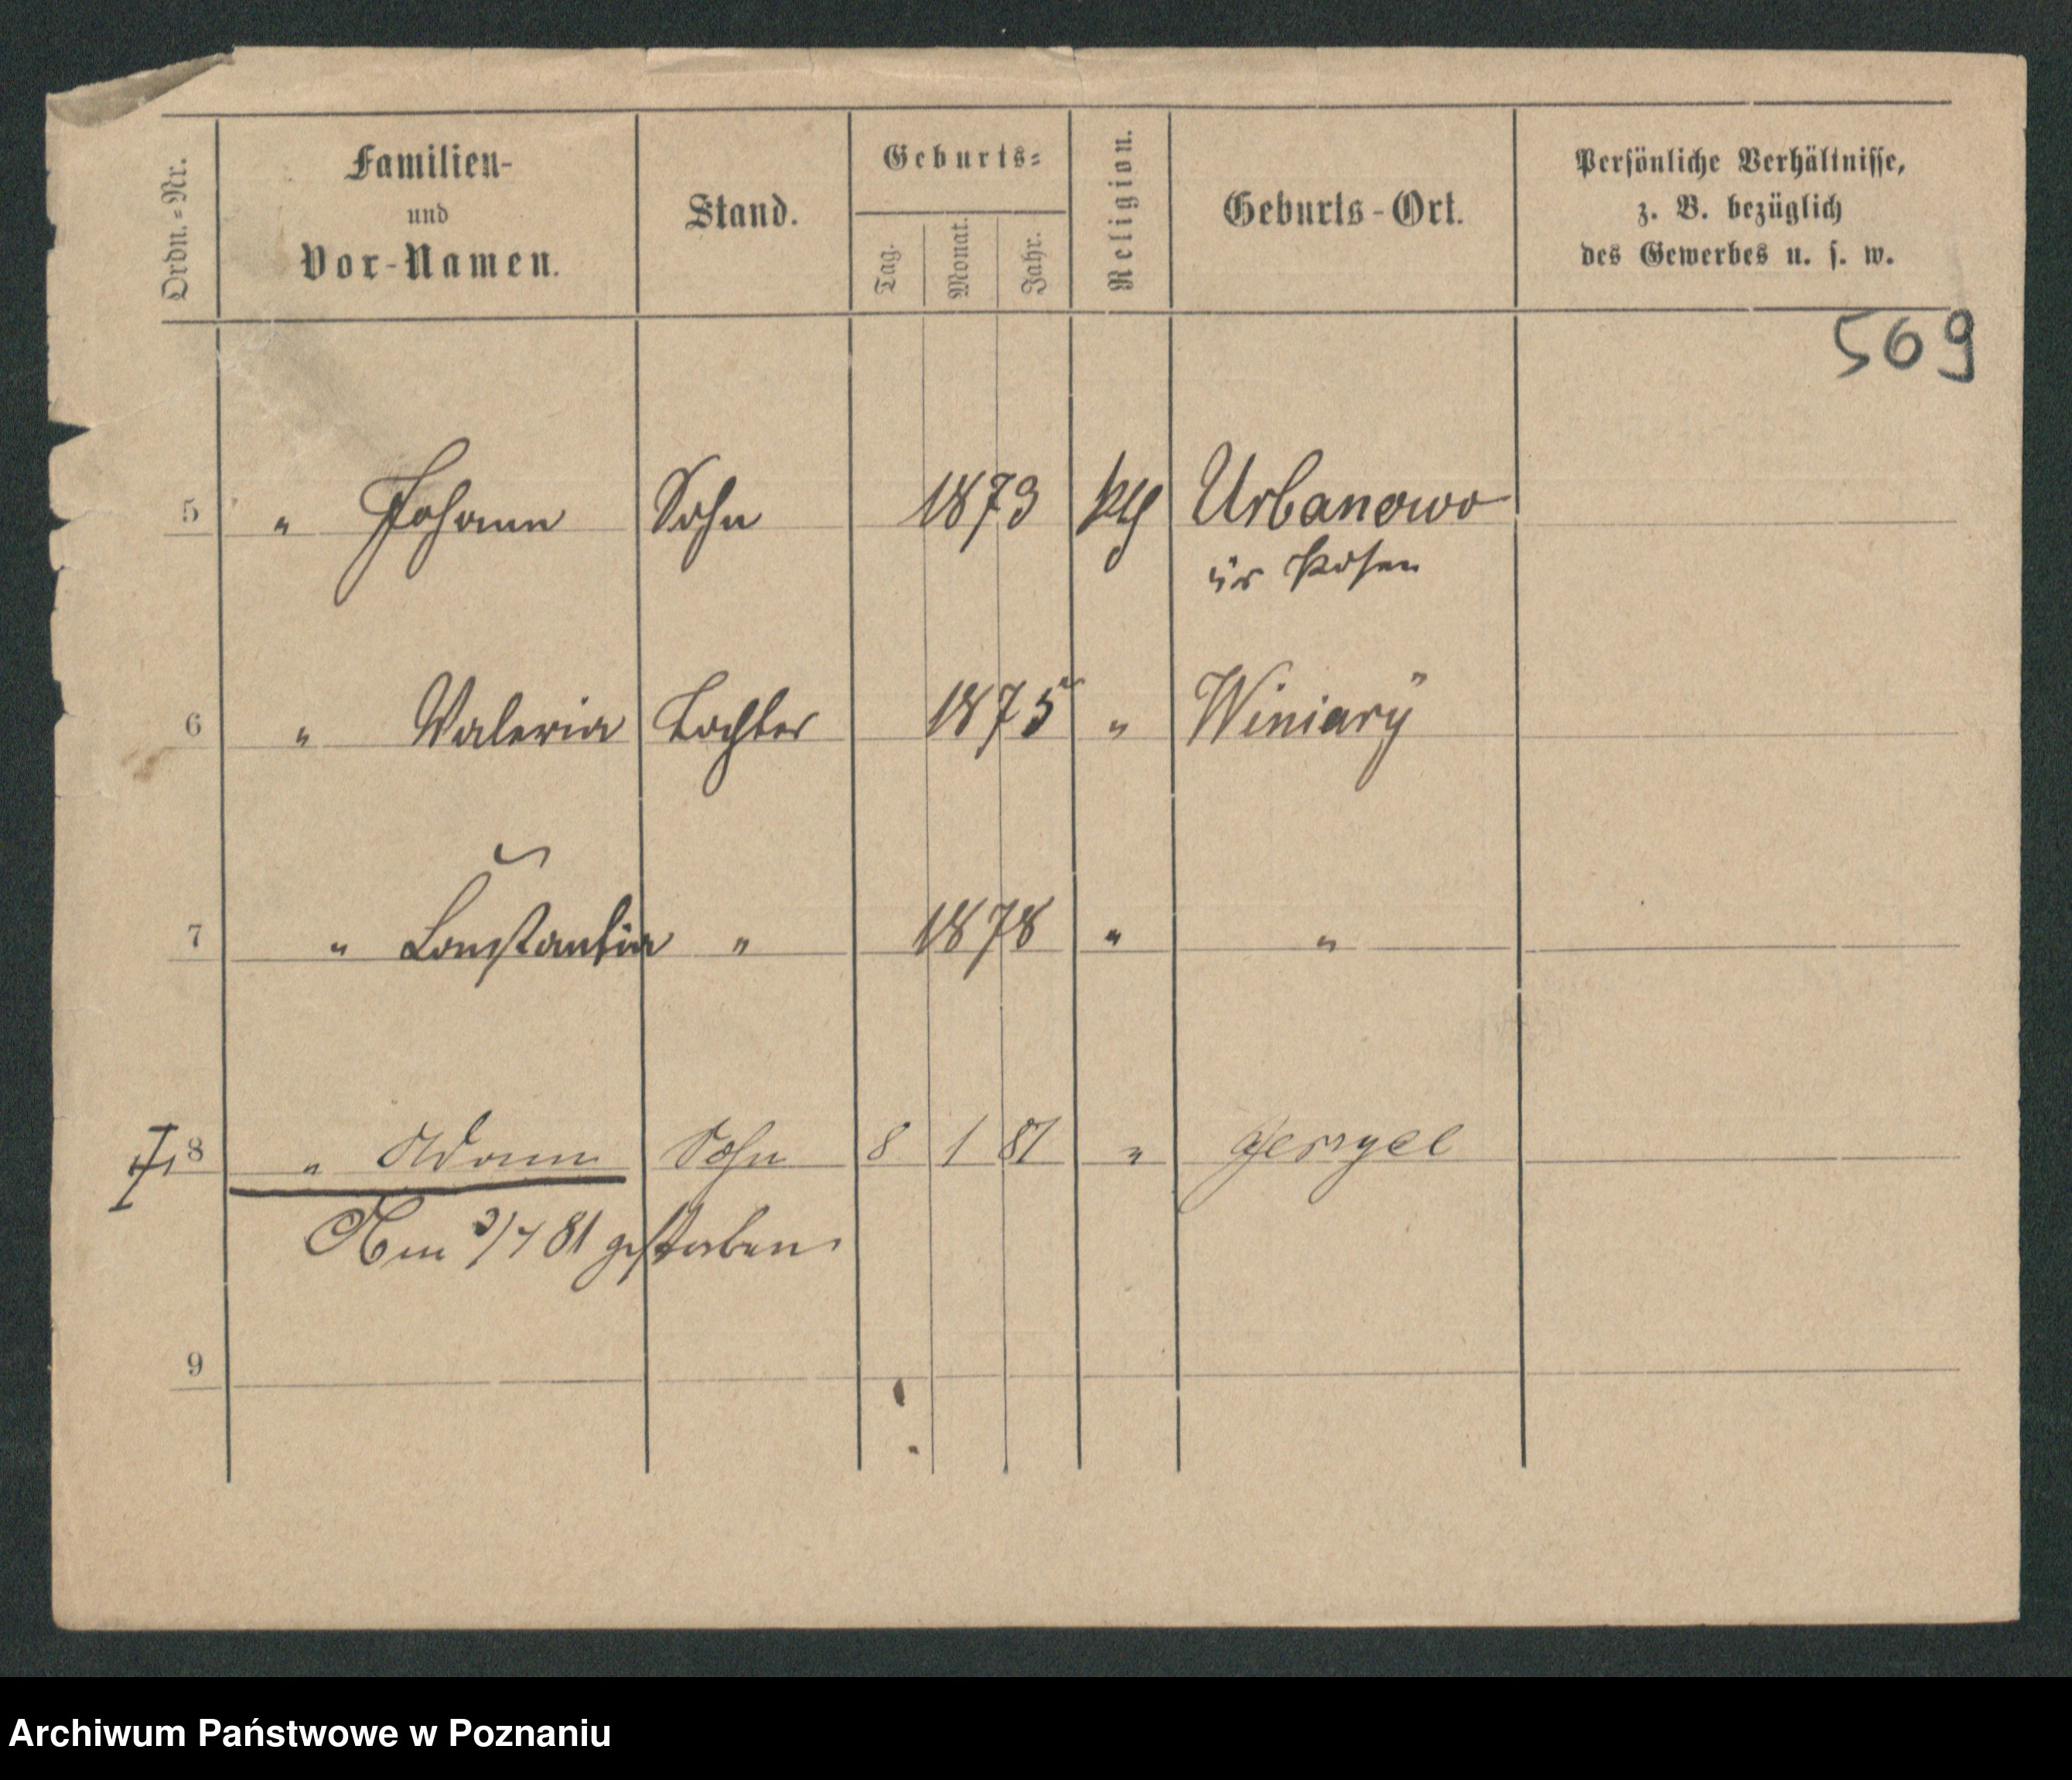 Ordn.-Nr.
Familien-
und
Vor-Namen.
Stand.
Geburts-
Tag.
Monat.
Jahr.
Religion.
Geburts-Ort.
Persönliche Verhältnisse,
z. B. bezüglich
des Gewerbes u. s. w.
569
5 " Johann Sohn 1873 kth Urbanowo
Posen
6 " Valeria Tochter 1875 " Winiary
7 " Constantia " 1878 " "
8 " Adam Sohn 8 1 81 "
Am 3/4 81 gestorben
9
Archiwum Państwowe w Poznaniu